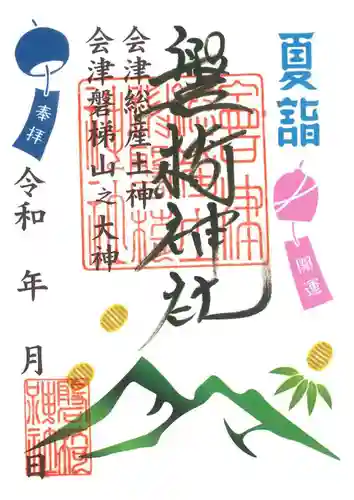 夏詣
開運
磐椅神社
会津総産土神
会津磐梯山之大神
奉拝
令和 年 月 日